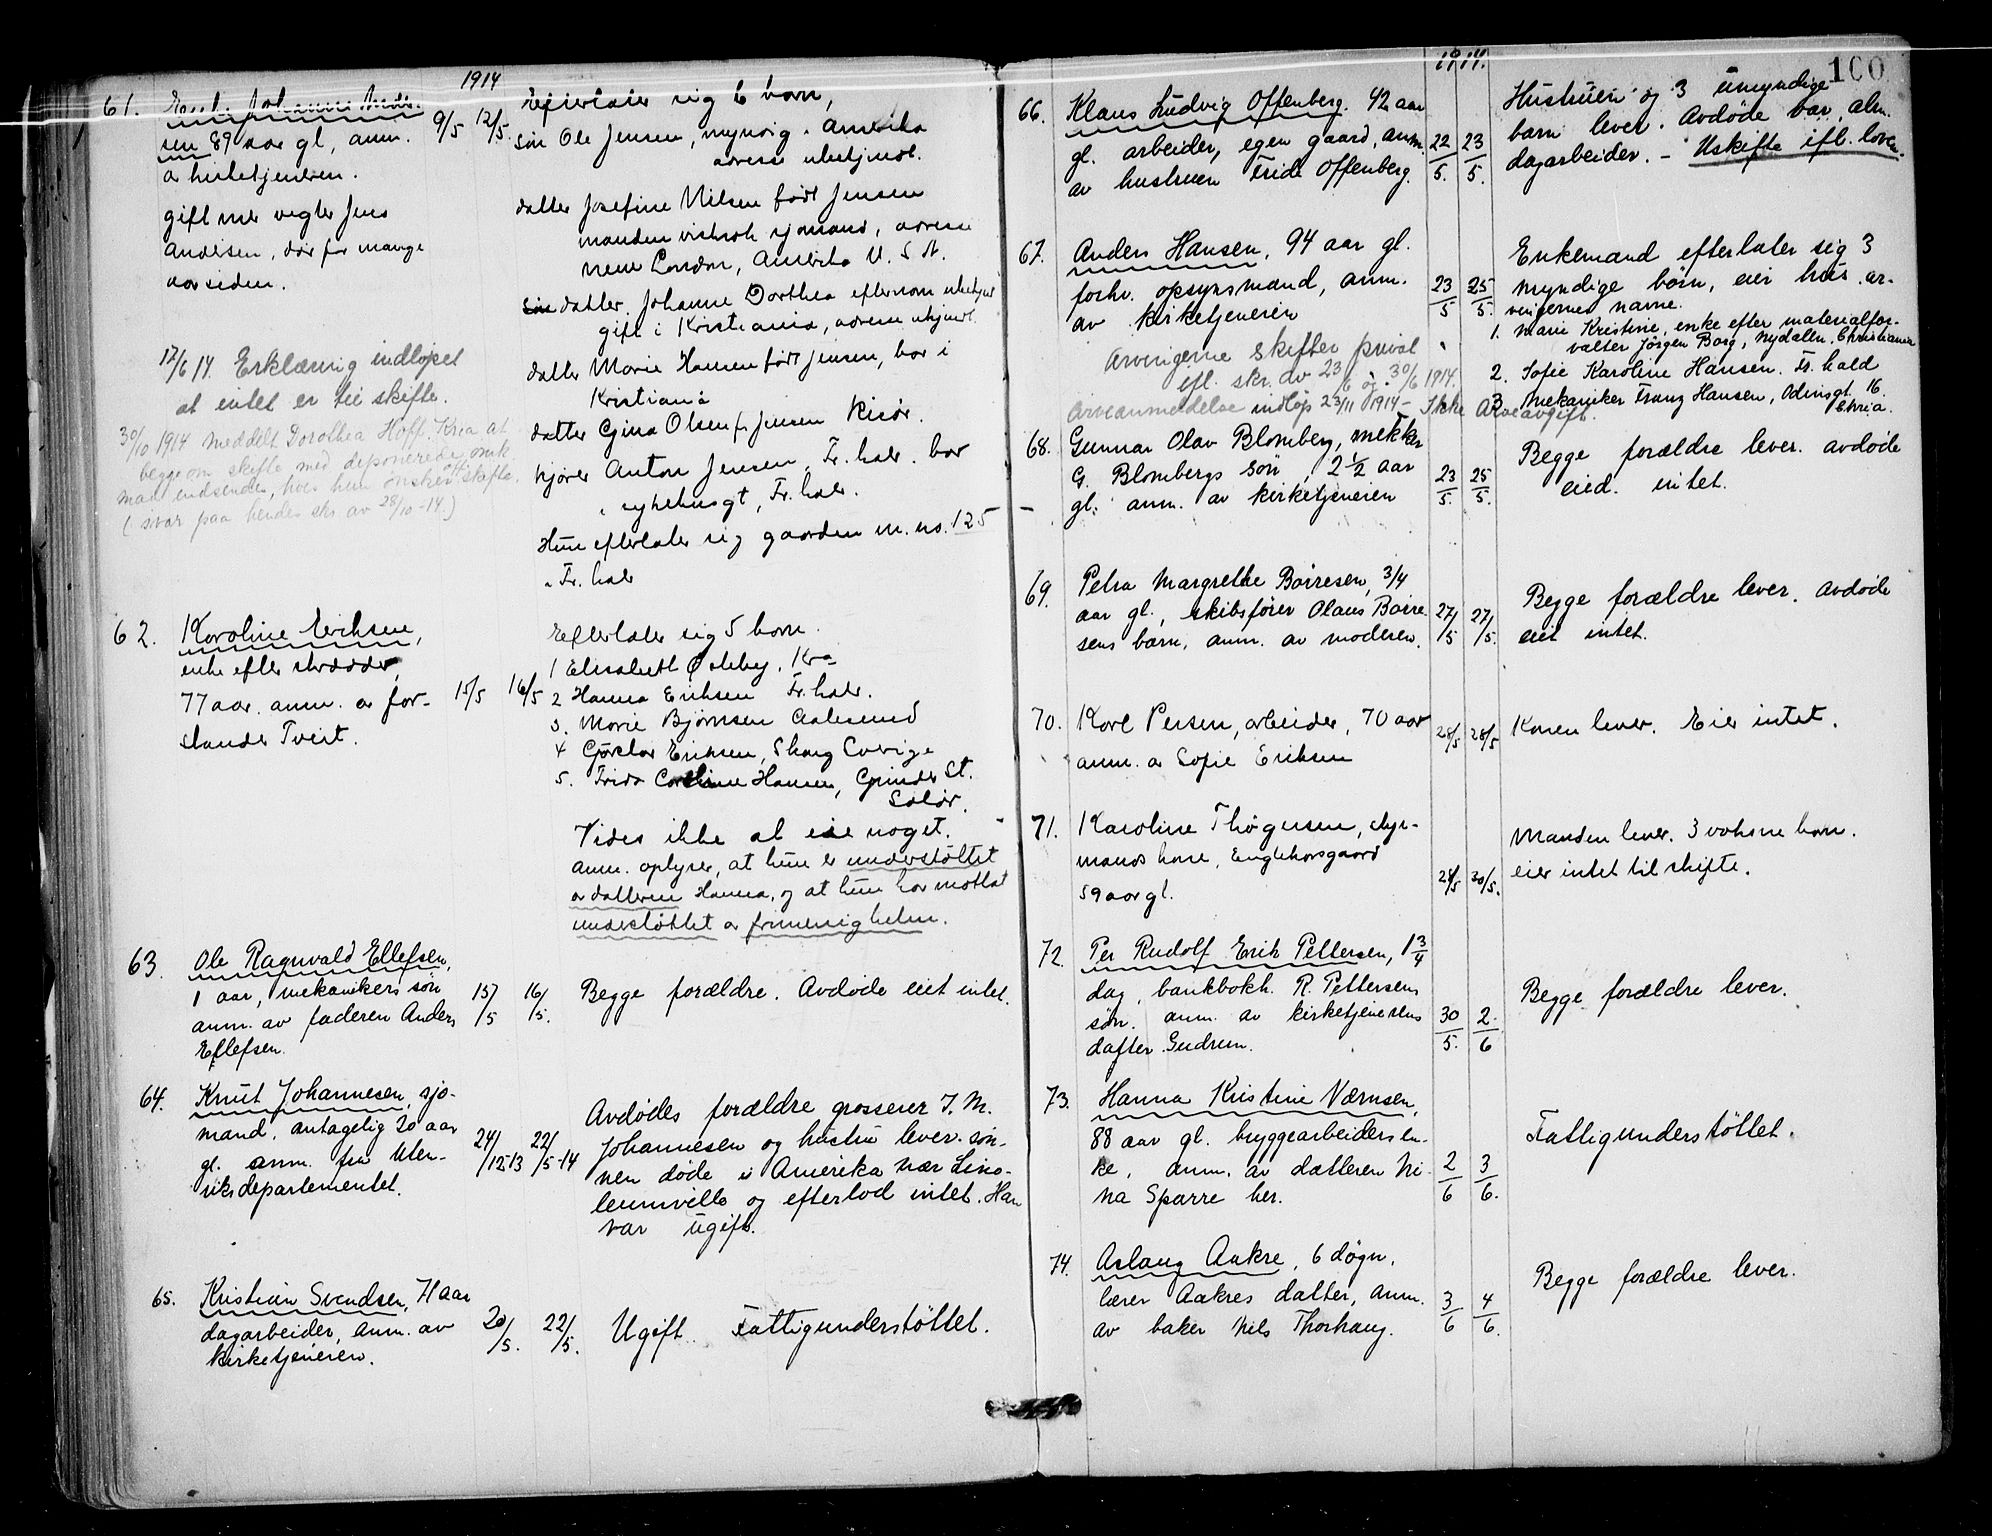 1914
61. Enke Johanne Ander-
sen 89 aar gl, anm. 9/5 12/5.
a kirketjeneren.
gift med vegter Jens
Andersen, død for mange
aar siden.
17/6 14. Erklæring indløpet
at intet er til skifte.
30/10 1914 meddelt Dorothea Hoff. Kria at
begge om skifte med deponerede omk.
maa indsendes, hvis hun ønsker skifte.
(svar paa hendes skr. av 28/10-14.)
Efterlater sig 6 barn,
søn Ole Jensen, myndig. Amerika
adresse ubekjendt.
datter Josefine Nilsen født Jensen
manden sjømand, adresse
New London, Amerika U. S. A.
datter Johanne Dorthea efternavn ubekjent
gift i Kristiania, adresse ukjendt.
datter Marie Hansen født Jensen, bor i
Kristiania
datter Gina Olsen f. Jensen Risør.
kjører Anton Jensen, Fr.hald. bor
i sykehusgt, Fr. hald.
Hun efterlater sig gaarden m. no. 125
i Fr. hald
62. Karoline Eriksen,
enke efter skrædder,
77 aar. anm. a for-
stander Tveit. 15/5 16/5
Efterlater sig 5 barn.
1 Elisabeth Ødeby, Kra
2 Hanna Eriksen Fr.hald.
3. Marie Bjørnsen Aalesund
4 Gustav Eriksen, Skog Sverige
5. Frida Caroline Hansen, Grinder St.
Solør.
Vides ikke at eie noget.
anm. oplyser, at hun er understøttet
av datteren Hanna, og at hun har mottat
understøttet a frimenigheten.
63. Ole Ragnvald Ellefsen,
1 aar, mekanikers søn
anm. av faderen Anders
Ellefsen. 15/5 16/5.
Begge forældre. Avdøde eiet intet.
64. Knut Johannesen, sjø-
mand, antagelig 20 aar
gl. anm. fra Uten-
riksdepartementet. 24/12-13 22/5-14
Avdødes forældre grosserer J. M.
Johannesen og hustru lever. Søn-
nen døde i Amerika nær Lino-
leumville og efterlod intet. Han
var ugift.
65. Kristian Svendsen, 71 aar
dagarbeider, anm. av
kirketjeneren. 20/5. 22/5.
Ugift. Fattigunderstøttet.
1914. 100
66. Klaus Ludvig Offenberg. 42 aar
gl. arbeider, egen gaard, anm.
av hustruen Frida Offenberg. 22/5. 23/5.
Hustruen og 3 umyndige
barn lever. Avdøde var alm.
dagarbeider. - Uskifte ifl. loven.
67. Anders Hansen, 94 aar gl.
forhv. opsynsmand, anm.
av kirketjeneren 23/5 25/5.
Arvingerne skifter privat
efl. skr. av 23/6 og 30/6 1914.
Arveanmeldelse indløp 23/11 1914 - Ikke Arveavgift.
Enkemand efterlater sig 3
myndige børn, eier hus. ar-
vingernes navne.
1. Marie Kristine, enke efter materialfor-
valter Jørgen Borg, Nydalen, Christiania
2. Sofie Karoline Hansen. Fr. hald
3 Mekaniker Franz Hansen, Odinsgt. 16.
Chria.
68. Gunnar Olav Blomberg, mekkr
G. Blombergs søn, 2 1/2 aar
gl. anm. av kirketjeneren 23/5. 25/5.
Begge forældre lever. Avdøde
eied. intet.
69. Petra Margrethe Børresen, 3/4
aar gl., skibsfører Olaus Børre
sens barn, anm. av moderen. 27/5 27/5.
Begge forældre lever. Avdøde
eiet intet.
70. Karl Persen, arbeider, 70 aar
anm. a Sofie Eriksen 28/5 28/5
Konen lever. Eier intet.
71. Karoline Thøgersen, styr-
mands kone, Englekorsgaard
59 aar gl. 28/5 30/5.
Manden lever. 3 voksne barn.
eier intet til skifte.
72. Per Rudolf Erik Pettersen, 1 3/4
dag, bankbokh. R. Pettersens
søn. anm. av kirketjenerens
datter Gudrun. 30/5. 2/6
Begge forældre lever.
73. Hanna Kristine Værnsen,
88 aar gl. bryggearbeiders en-
ke, anm. av datteren Ni-
na Sparre her. 2/6 3/6.
Fattigunderstøttet.
74. Aslaug Aakre, 6 døgn,
lærer Aakres datter, anm.
av baker Nils Thorhaug. 3/6 4/6.
Begge forældre lever.